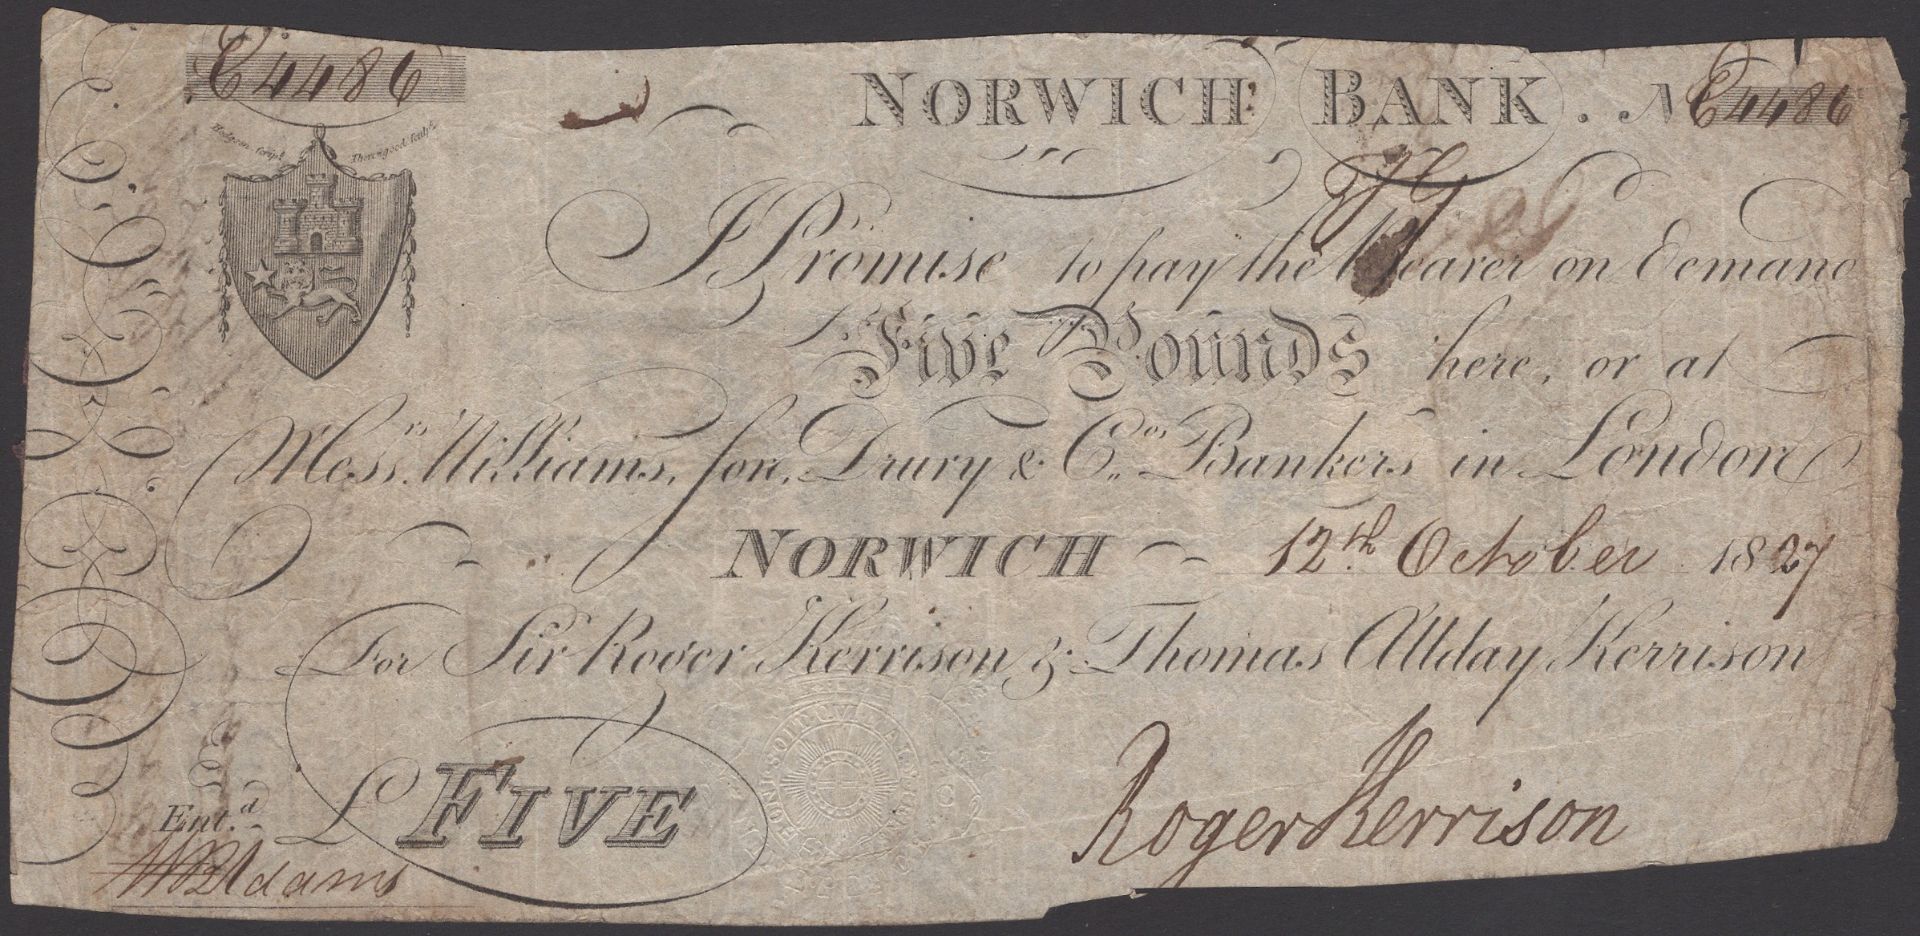 C4486
NORWICH BANK. No C4486
Hodgson script Thorogood sculpt.
I Promise to pay the Bearer on Demand
Five Pounds here, or at
Messrs. Williams, Son, Drury & Cos. Bankers in London
NORWICH 12th October 1827
For Sir Roger Kerrison & Thomas Allday Kerrison
£ FIVE
Roger Kerrison
Entd.
Adams